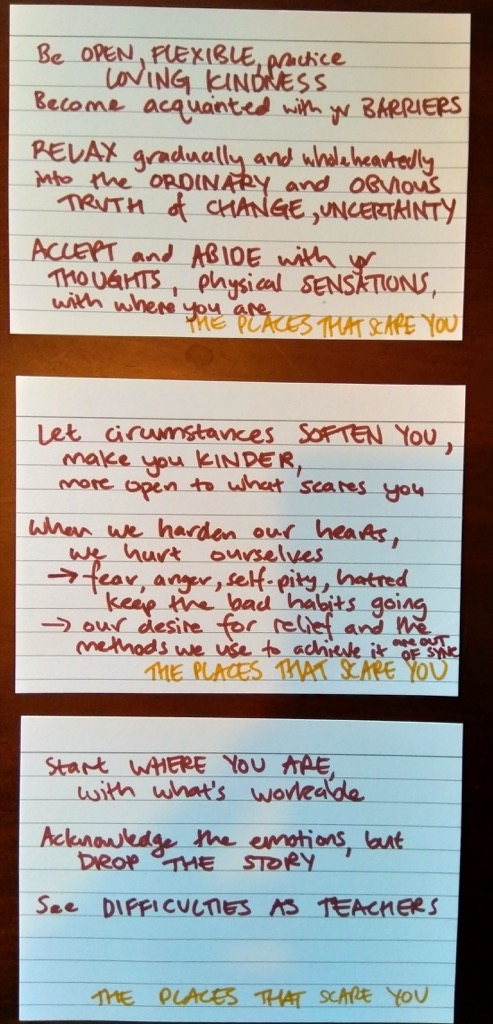 Be OPEN, FLEXIBLE, practice
LOVING KINDNESS
Become acquainted with yr BARRIERS
RELAX gradually and wholeheartedly
into the ORDINARY and OBVIOUS
TRUTH of CHANGE, UNCERTAINTY
ACCEPT and ABIDE with yr
THOUGHTS, physical SENSATIONS,
with where you are
THE PLACES THAT SCARE YOU
Let circumstances SOFTEN YOU,
make you KINDER,
more open to what scares you
When we harden our hearts,
we hurt ourselves
→ fear, anger, self-pity, hatred
keep the bad habits going
→ our desire for relief and the
methods we use to achieve it are OUT
OF SYNC
THE PLACES THAT SCARE YOU
Start WHERE YOU ARE,
with what's workable
Acknowledge the emotions, but
DROP THE STORY
See DIFFICULTIES AS TEACHERS
THE PLACES THAT SCARE YOU